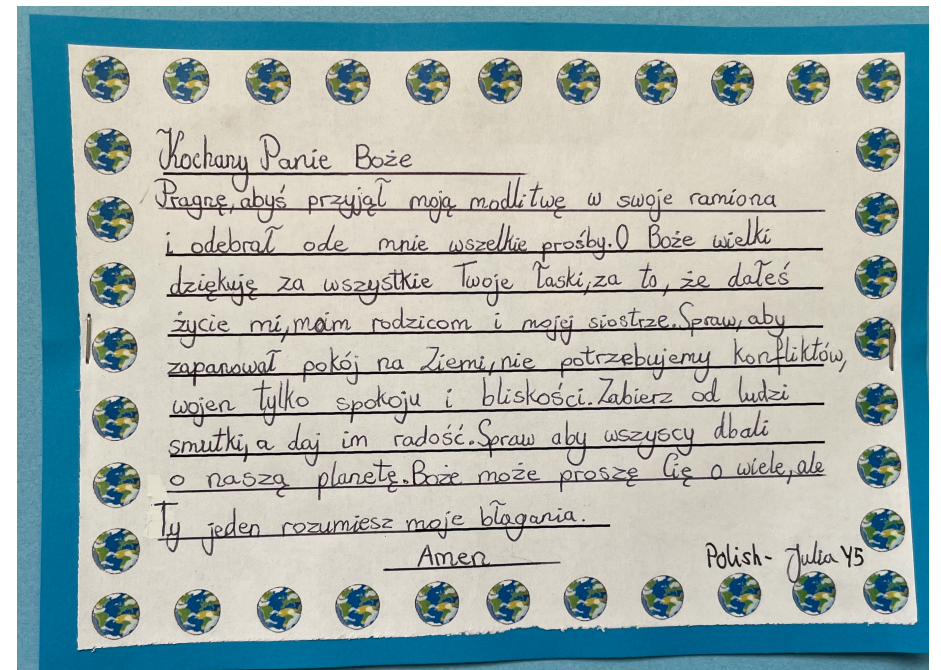 Kochany Panie Boże
Pragnę, abyś przyjął moją modlitwę w swoje ramiona
i odebrał ode mnie wszelkie prośby. O Boże wielki
dziękuję za wszystkie Twoje łaski, za to, że dałeś
życie mi, moim rodzicom i mojej siostrze. Spraw, aby
zapanował pokój na Ziemi, nie potrzebujemy konfliktów,
wojen tylko spokoju i bliskości. Zabierz od ludzi
smutki, a daj im radość. Spraw aby wszyscy dbali
o naszą planetę. Boże może proszę Cię o wiele, ale
Ty jeden rozumiesz moje błagania.
Amen
Polish - Julia Y5